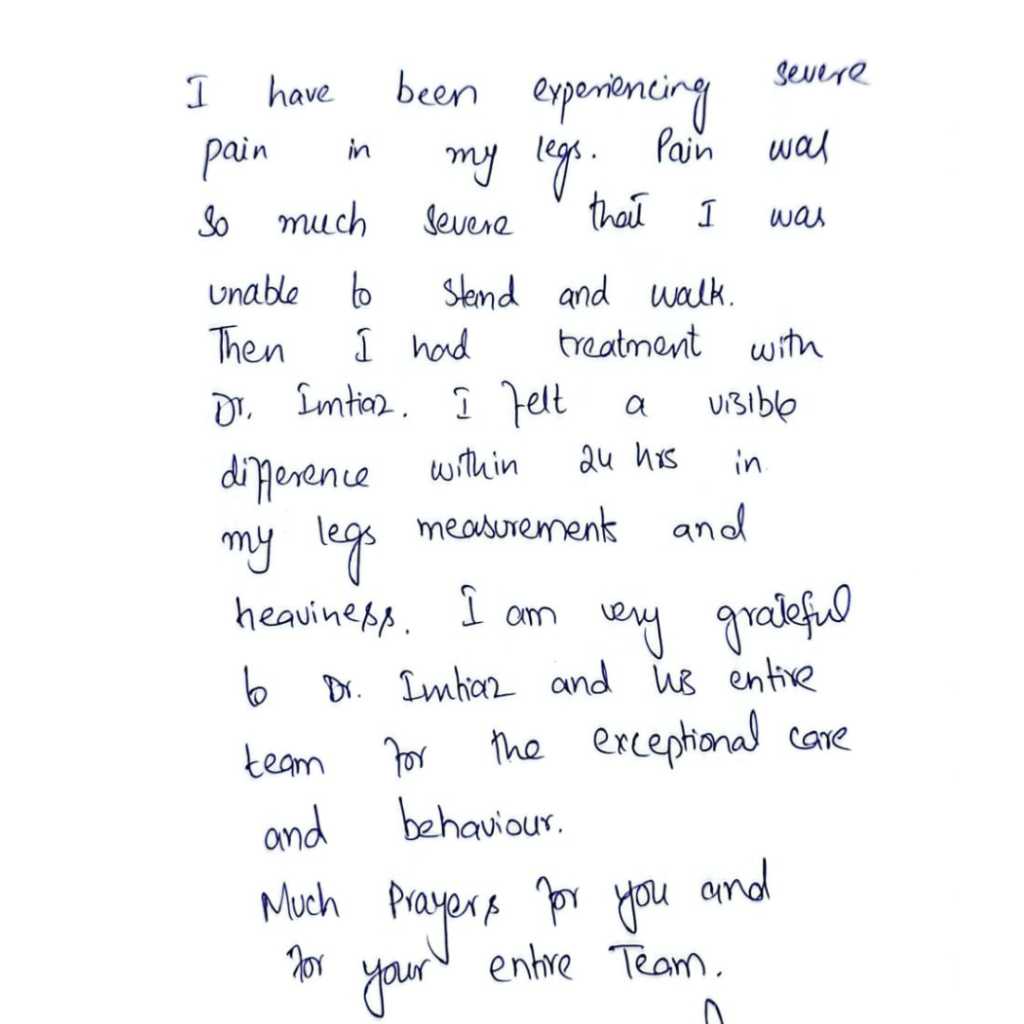 I have been experiencing severe
pain in my legs. Pain was
so much severe that I was
unable to stand and walk.
Then I had treatment with
Dr. Imtiaz. I felt a visible
difference within 24 hrs in
my legs measurements and
heaviness. I am very grateful
to Dr. Imtiaz and his entire
team for the exceptional care
and behaviour.
Much Prayers for you and
for your entire Team.